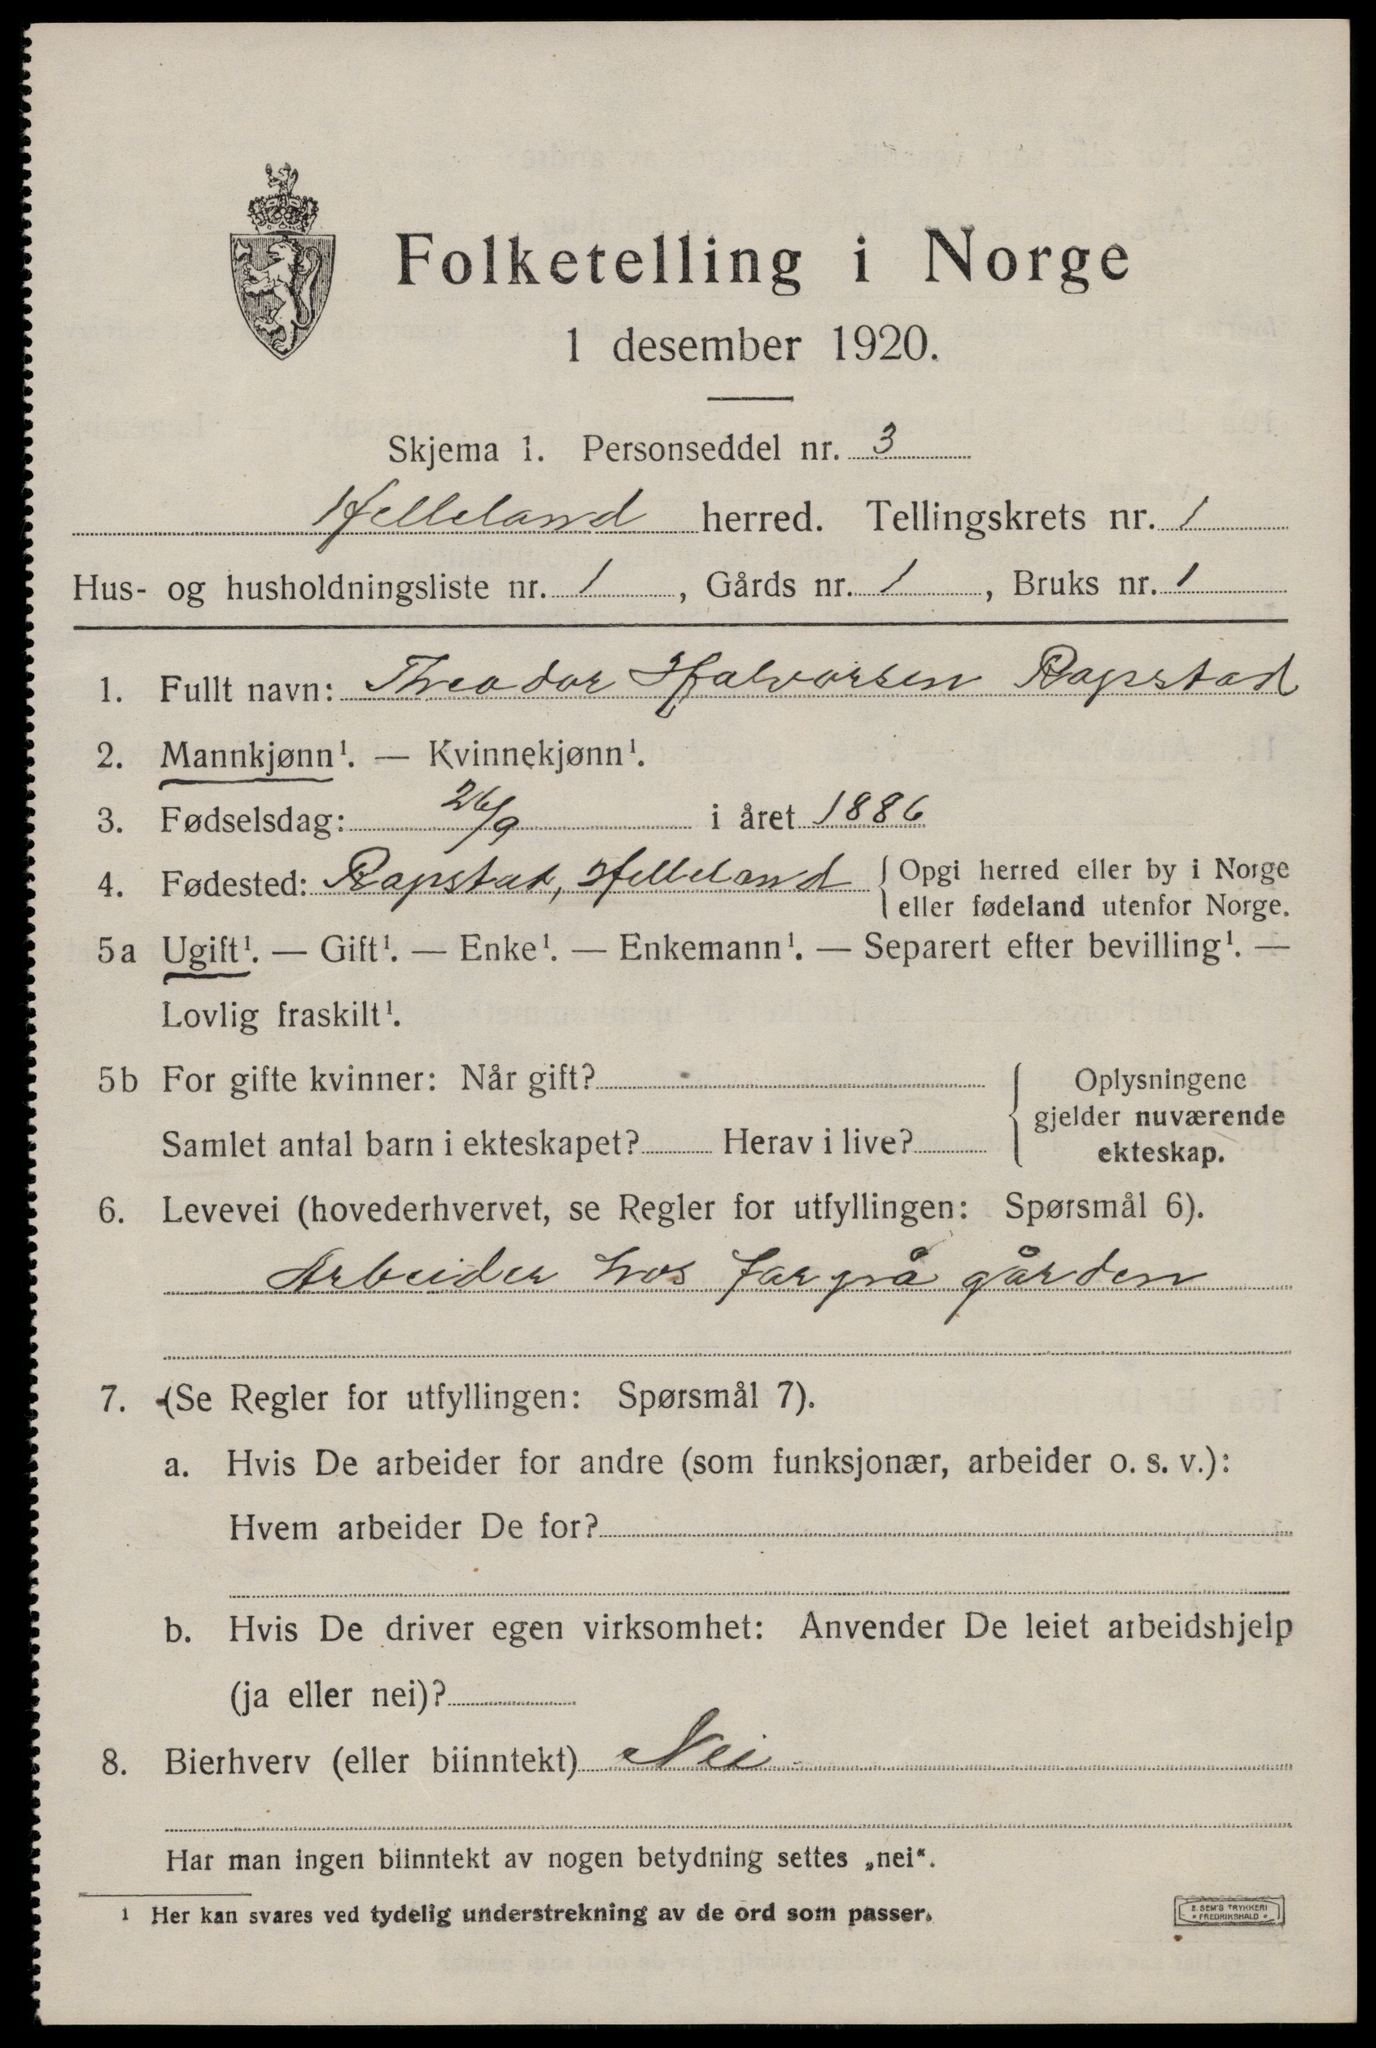 Folketelling i Norge
1 desember 1920.
Skjema 1. Personseddel nr. 3
Helleland herred. Tellingskrets nr. 1
Hus- og husholdningsliste nr. 1, Gårds nr. 1, Bruks nr. 1
1. Fullt navn: Theodor Halvorsen Rapstad
2. Mannkjønn¹. — Kvinnekjønn¹.
3. Fødselsdag: 26/9 i året 1886
4. Fødested: Rapstad, Helleland { Opgi herred eller by i Norge
eller fødeland utenfor Norge.
5a Ugift¹. — Gift¹. — Enke¹. — Enkemann¹. — Separert efter bevilling¹. —
Lovlig fraskilt¹.
5b For gifte kvinner: Når gift? { Oplysningene
gjelder nuværende
Samlet antal barn i ekteskapet? Herav i live? ekteskap.
6. Levevei (hovederhvervet, se Regler for utfyllingen: Spørsmål 6).
Arbeider hos far på gården
7. (Se Regler for utfyllingen: Spørsmål 7).
a. Hvis De arbeider for andre (som funksjonær, arbeider o. s. v.):
Hvem arbeider De for?
b. Hvis De driver egen virksomhet: Anvender De leiet arbeidshjelp
(ja eller nei)?
8. Bierhverv (eller biinntekt) Nei
Har man ingen biinntekt av nogen betydning settes „nei“.
¹ Her kan svares ved tydelig understrekning av de ord som passer.
E. SEM'S TRYKKERI
FREDRIKSHALD